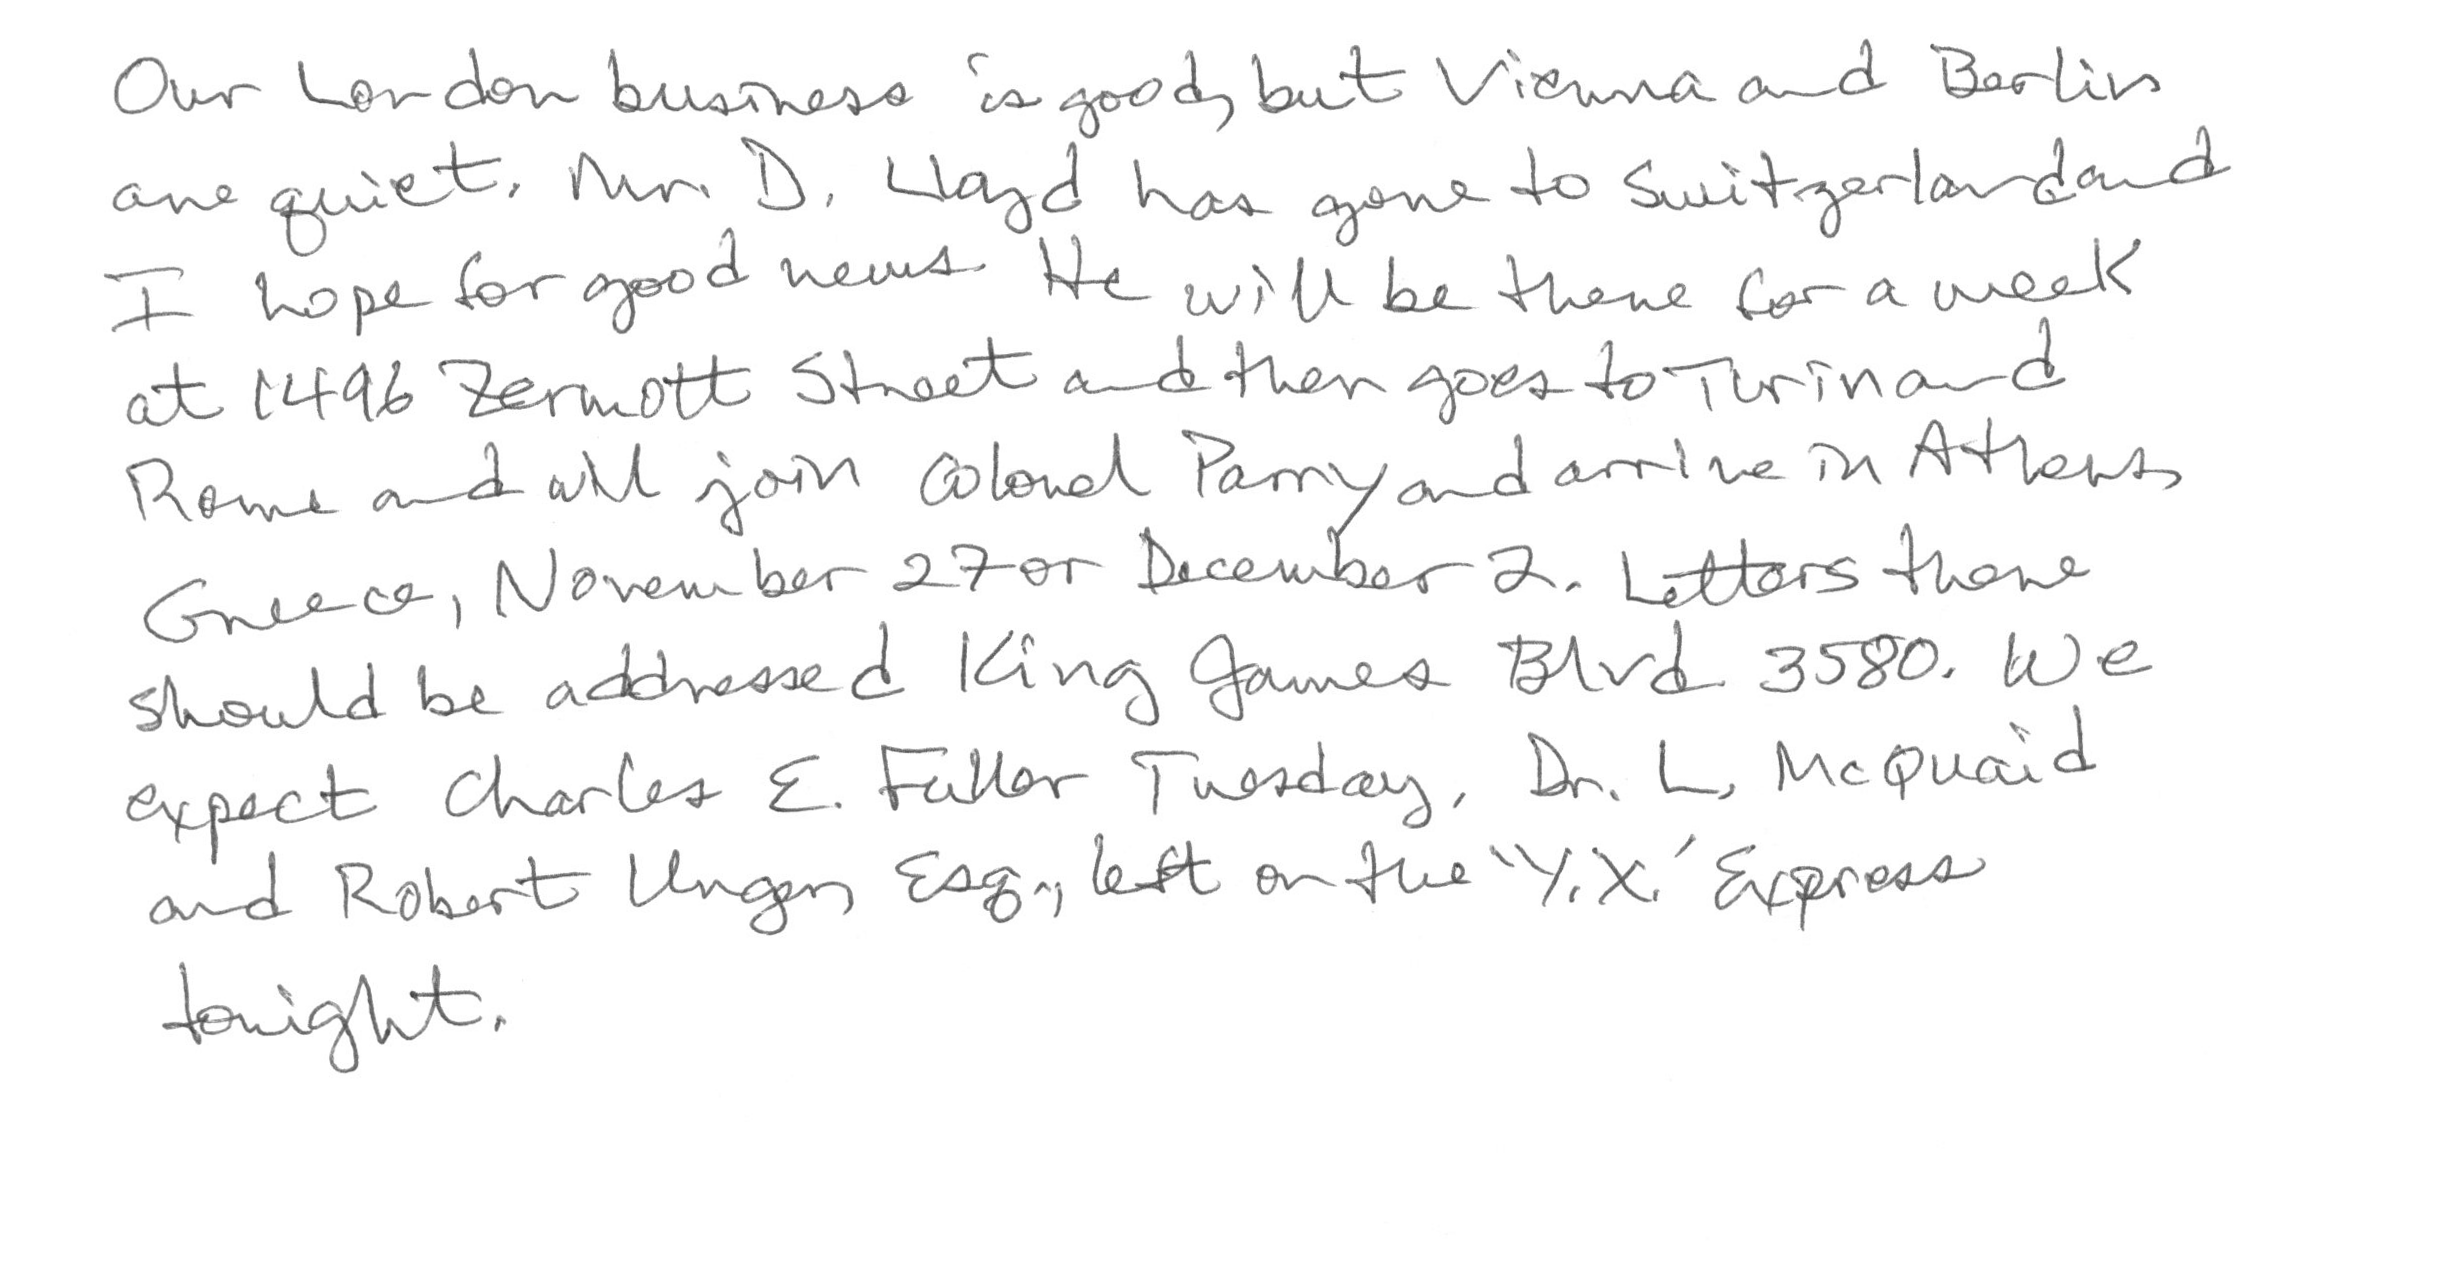 Our London business is good, but Vienna and Berlin
are quiet. Mr. D. Lloyd has gone to Switzerland and
I hope for good news. He will be there for a week
at 1496 Zermott Street and then goes to Turin and
Rome and will join Colonel Parry and arrive in Athens,
Greece, November 27 or December 2. Letters there
should be addressed King James Blvd. 3580. We
expect Charles E. Fuller Tuesday. Dr. L. McQuaid
and Robert Unger, Esq., left on the 'Y.X.' Express
tonight.